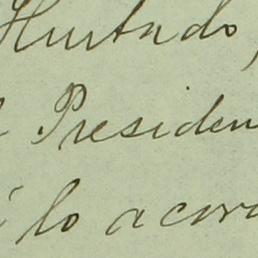 Hurtado,
Presiden
lo acor